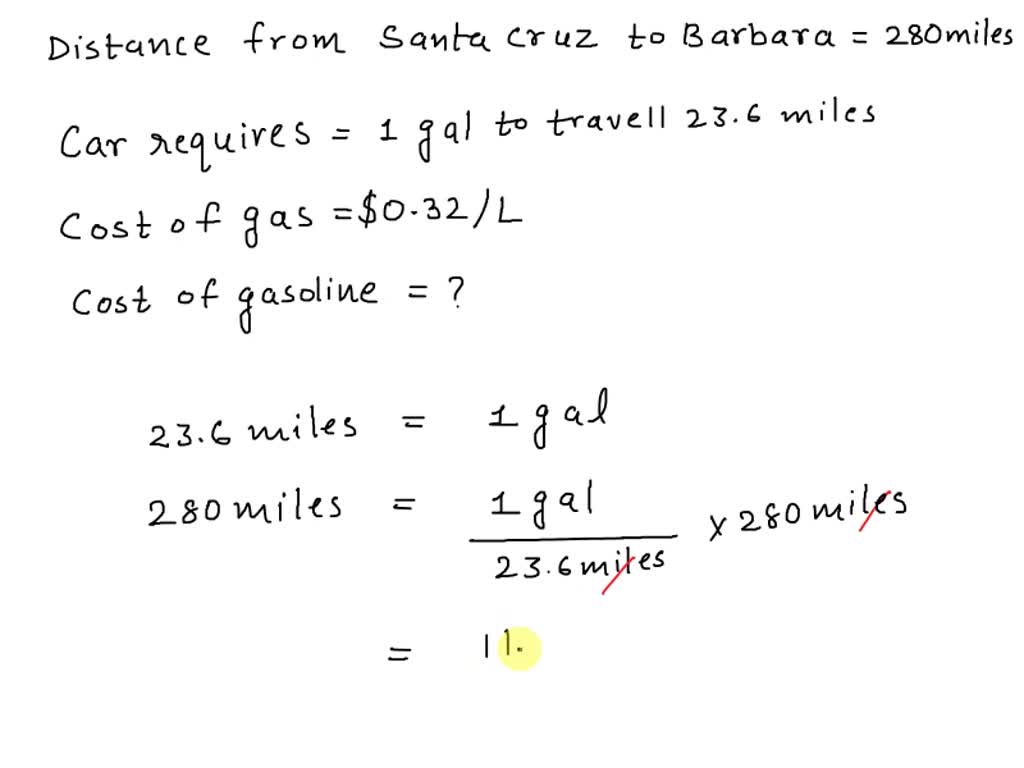 Distance from Santa Cruz to Barbara = 280 miles
Car requires = 1 gal to travell 23.6 miles
Cost of gas = $0.32/L
Cost of gasoline = ?
23.6 miles = 1 gal
280 miles = 1 gal / 23.6 miles × 280 miles
= 11.